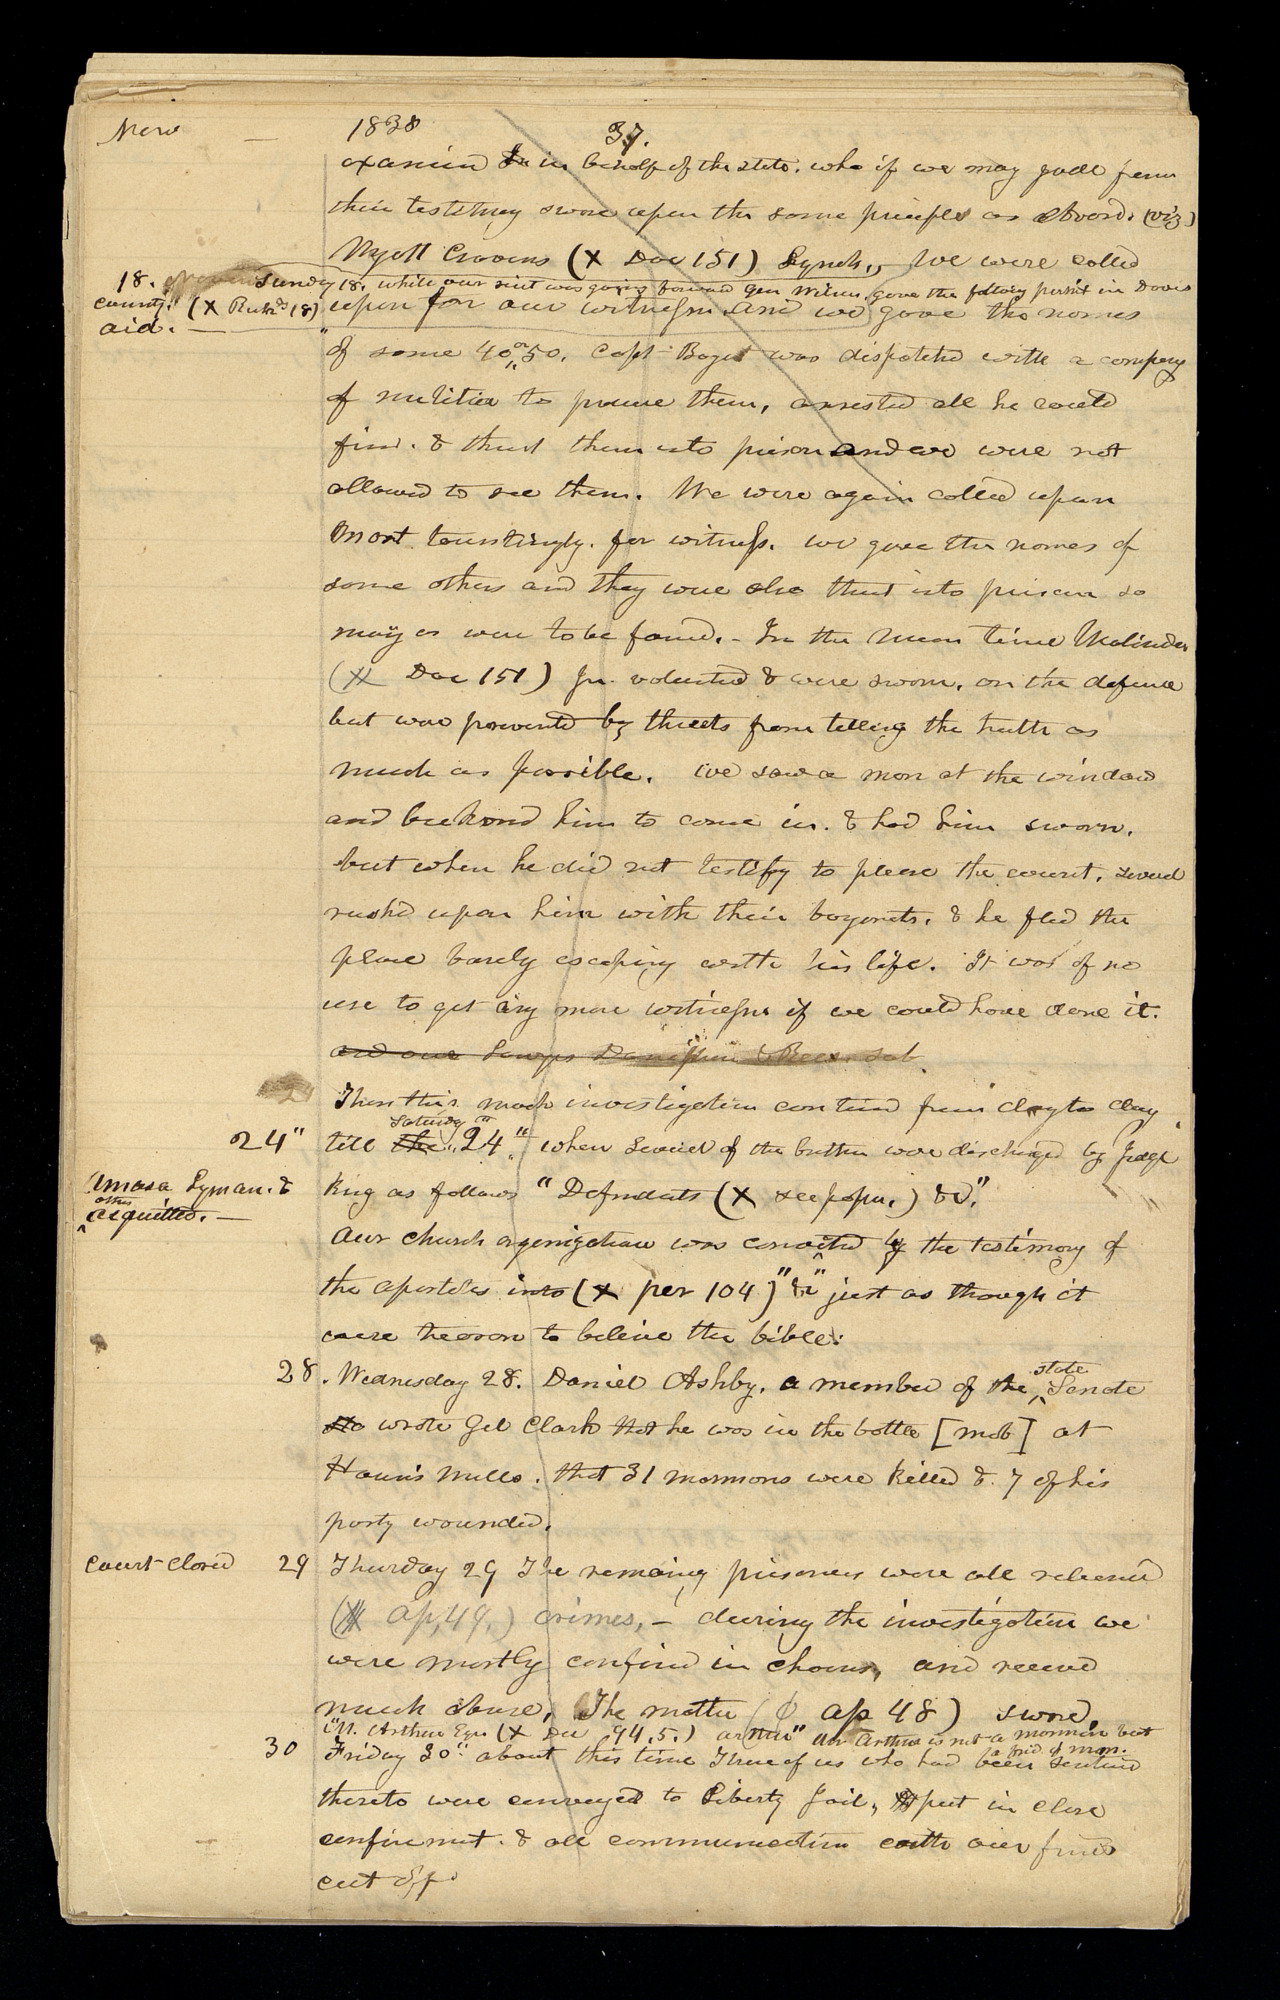 Nov — 1838 37.
examind in behalf of the state. who if we may gudge from
their testimny swore upon the same principle as Avard. (viz)
Wyatt Cravens (X Doc 151) Lynch., We were called
18. Sunday 18. while our suit was going forward Gen Wilson gave the follwig permit in Davis
county." (X Reck^d 18)
aid. —
upon for our witness and we gave the names
of some 40 or 50. Capt Bogert was dispatchd with a company
of militia to procure them, arrested all he could
find. & thrust them into prison and we were not
allowed to see them. We were again called upon
most tauntingly. for witness. we gave the names of
some others and they were also thrust into prison so
many as were to be found. – In the mean time Malinda
(X Doc 151) Jr. volunted & were sworn. on the defence
but was prevented by threats from telling the truth as
much as possible. we saw a man at the window
and beckond him to come in. & had him sworn.
but when he did not testify to please the court. several
rushd upon him with their bayonets. & he fled the
place barely escaping with his life. It was of no
use to get any more witnesses if we could have done it.
and our lawyers Doniphan & Rees. sat
Then this mock investigation contind from day to day
24" till the Saturday 24." when several of the brethren were discharged by Judge
Amasa Lyman. &
others
acquitted. —
King as follows "Defendants (X see paper.) &c."
Our church organization was convertd by the testimony of
the apostates into (X per 104)" &c" just as though it
were treason to believe the bible.
28. Wednesday 28. Daniel Ashby. a member of the state Senate
wrote Gel Clark that he was in the battle [mob] at
Hauns Mills. that 31 mormons were killed & 7 of his
party wounded.
Court closed 29 Thursday 29 The remaing prisoners were all released
(X ap, 49.) crimes, — during the investigation we
were mostly confind in chains, and received
much abuse, The matter (ϕ ap 48) swore,
"M. Arthur Esqr (X Doc 94.5.) arthur" Mr Arthur is not a mormon but
a frid of man.
30 Friday 30" about this time Those of us who had been sentencd
thereto were conveyed to Liberty Jail, put in close
confinemnt. & all communication with our friends
cut off.